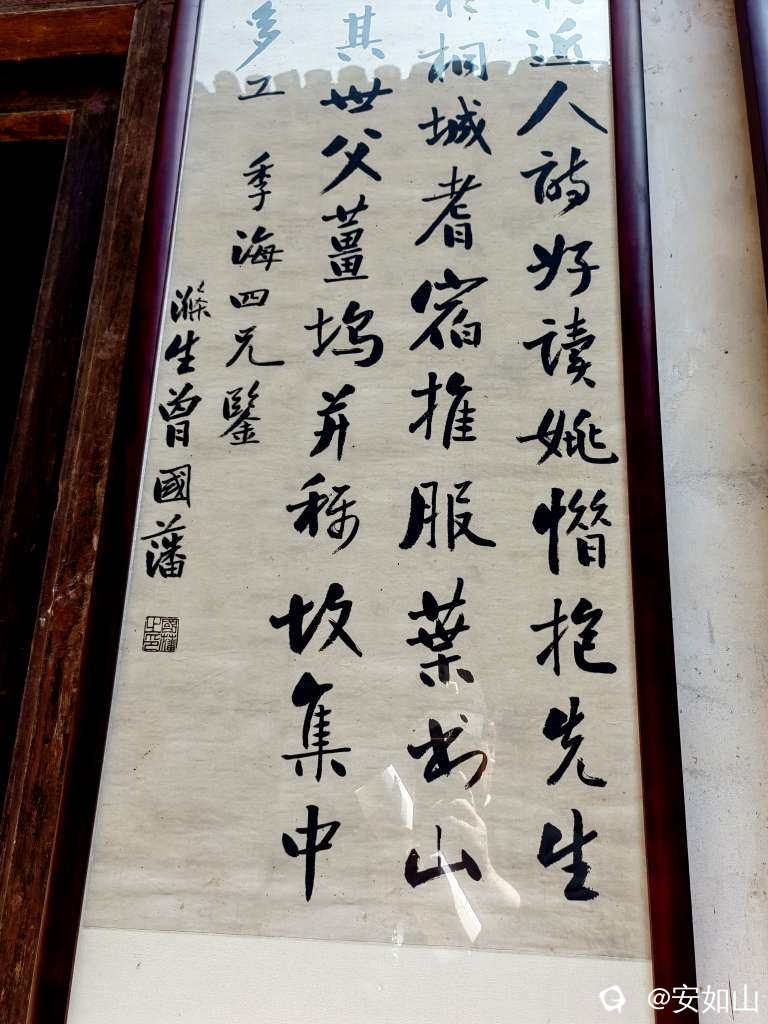 近人詩好讀姚惜抱先生
於桐城耆宿推服葉書山
其世父薑塢并稱故集中
多工 季海四兄鑒
滌生曾國藩
國藩之印
@安如山